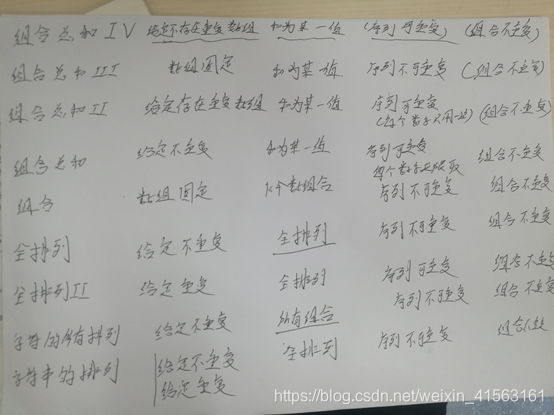 组合总和IV 给定不存在重复数组 和为某一值 (序列可重复) (组合不重复)
组合总和III 数组固定 和为某一值 序列不可重复 (组合不重复)
组合总和II 给定存在重复数组 和为某一值 序列可重复 (组合不重复)
(每个数字只用一次)
组合总和 给定不重复 和为某一值 序列可重复 组合不重复
每个数字无限取
组合 数组固定 k个数组合 序列不可重复 组合不重复
全排列 给定不重复 全排列 序列不可重复 组合不重复
全排列II 给定重复 全排列 序列可重复 组合不重复
字符的所有排列 给定不重复 所有组合 序列不可重复 组合不重复
字符串的排列 给定不重复 全排列 序列不可重复
给定重复
https://blog.csdn.net/weixin_41563161